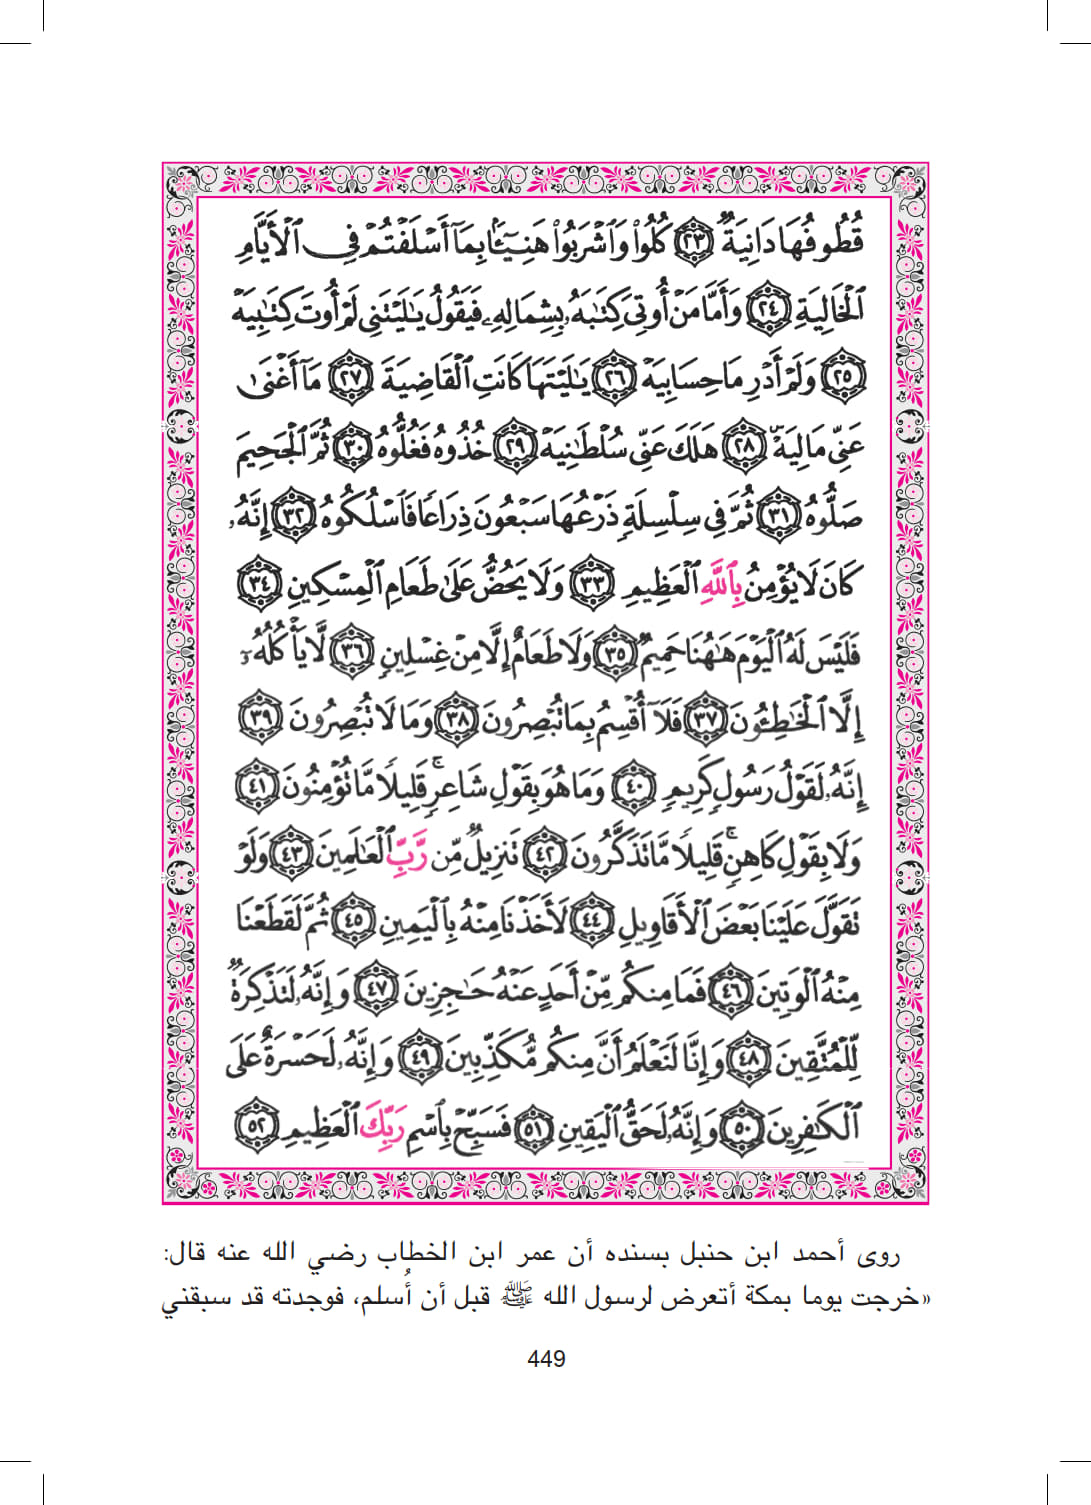 قُطُوفُهَا دَانِيَةٌ ﴿٢٣﴾ كُلُوا۟ وَٱشْرَبُوا۟ هَنِيٓـًٔۢا بِمَآ أَسْلَفْتُمْ فِى ٱلْأَيَّامِ
ٱلْخَالِيَةِ ﴿٢٤﴾ وَأَمَّا مَنْ أُوتِىَ كِتَٰبَهُۥ بِشِمَالِهِۦ فَيَقُولُ يَٰلَيْتَنِى لَمْ أُوتَ كِتَٰبِيَهْ
﴿٢٥﴾ وَلَمْ أَدْرِ مَا حِسَابِيَهْ ﴿٢٦﴾ يَٰلَيْتَهَا كَانَتِ ٱلْقَاضِيَةَ ﴿٢٧﴾ مَآ أَغْنَىٰ
عَنِّى مَالِيَهْ ﴿٢٨﴾ هَلَكَ عَنِّى سُلْطَٰنِيَهْ ﴿٢٩﴾ خُذُوهُ فَغُلُّوهُ ﴿٣٠﴾ ثُمَّ ٱلْجَحِيمَ
صَلُّوهُ ﴿٣١﴾ ثُمَّ فِى سِلْسِلَةٍ ذَرْعُهَا سَبْعُونَ ذِرَاعًا فَٱسْلُكُوهُ ﴿٣٢﴾ إِنَّهُۥ
كَانَ لَا يُؤْمِنُ بِٱللَّهِ ٱلْعَظِيمِ ﴿٣٣﴾ وَلَا يَحُضُّ عَلَىٰ طَعَامِ ٱلْمِسْكِينِ ﴿٣٤﴾
فَلَيْسَ لَهُ ٱلْيَوْمَ هَٰهُنَا حَمِيمٌ ﴿٣٥﴾ وَلَا طَعَامٌ إِلَّا مِنْ غِسْلِينٍ ﴿٣٦﴾ لَّا يَأْكُلُهُۥٓ
إِلَّا ٱلْخَٰطِـُٔونَ ﴿٣٧﴾ فَلَآ أُقْسِمُ بِمَا تُبْصِرُونَ ﴿٣٨﴾ وَمَا لَا تُبْصِرُونَ ﴿٣٩﴾
إِنَّهُۥ لَقَوْلُ رَسُولٍ كَرِيمٍ ﴿٤٠﴾ وَمَا هُوَ بِقَوْلِ شَاعِرٍ ۚ قَلِيلًا مَّا تُؤْمِنُونَ ﴿٤١﴾
وَلَا بِقَوْلِ كَاهِنٍ ۚ قَلِيلًا مَّا تَذَكَّرُونَ ﴿٤٢﴾ تَنزِيلٌ مِّن رَّبِّ ٱلْعَٰلَمِينَ ﴿٤٣﴾ وَلَوْ
تَقَوَّلَ عَلَيْنَا بَعْضَ ٱلْأَقَاوِيلِ ﴿٤٤﴾ لَأَخَذْنَا مِنْهُ بِٱلْيَمِينِ ﴿٤٥﴾ ثُمَّ لَقَطَعْنَا
مِنْهُ ٱلْوَتِينَ ﴿٤٦﴾ فَمَا مِنكُم مِّنْ أَحَدٍ عَنْهُ حَٰجِزِينَ ﴿٤٧﴾ وَإِنَّهُۥ لَتَذْكِرَةٌ
لِّلْمُتَّقِينَ ﴿٤٨﴾ وَإِنَّا لَنَعْلَمُ أَنَّ مِنكُم مُّكَذِّبِينَ ﴿٤٩﴾ وَإِنَّهُۥ لَحَسْرَةٌ عَلَى
ٱلْكَٰفِرِينَ ﴿٥٠﴾ وَإِنَّهُۥ لَحَقُّ ٱلْيَقِينِ ﴿٥١﴾ فَسَبِّحْ بِٱسْمِ رَبِّكَ ٱلْعَظِيمِ ﴿٥٢﴾
روى أحمد ابن حنبل بسنده أن عمر ابن الخطاب رضي الله عنه قال:
«خرجت يوما بمكة أتعرض لرسول الله ﷺ قبل أن أُسلم، فوجدته قد سبقني
449